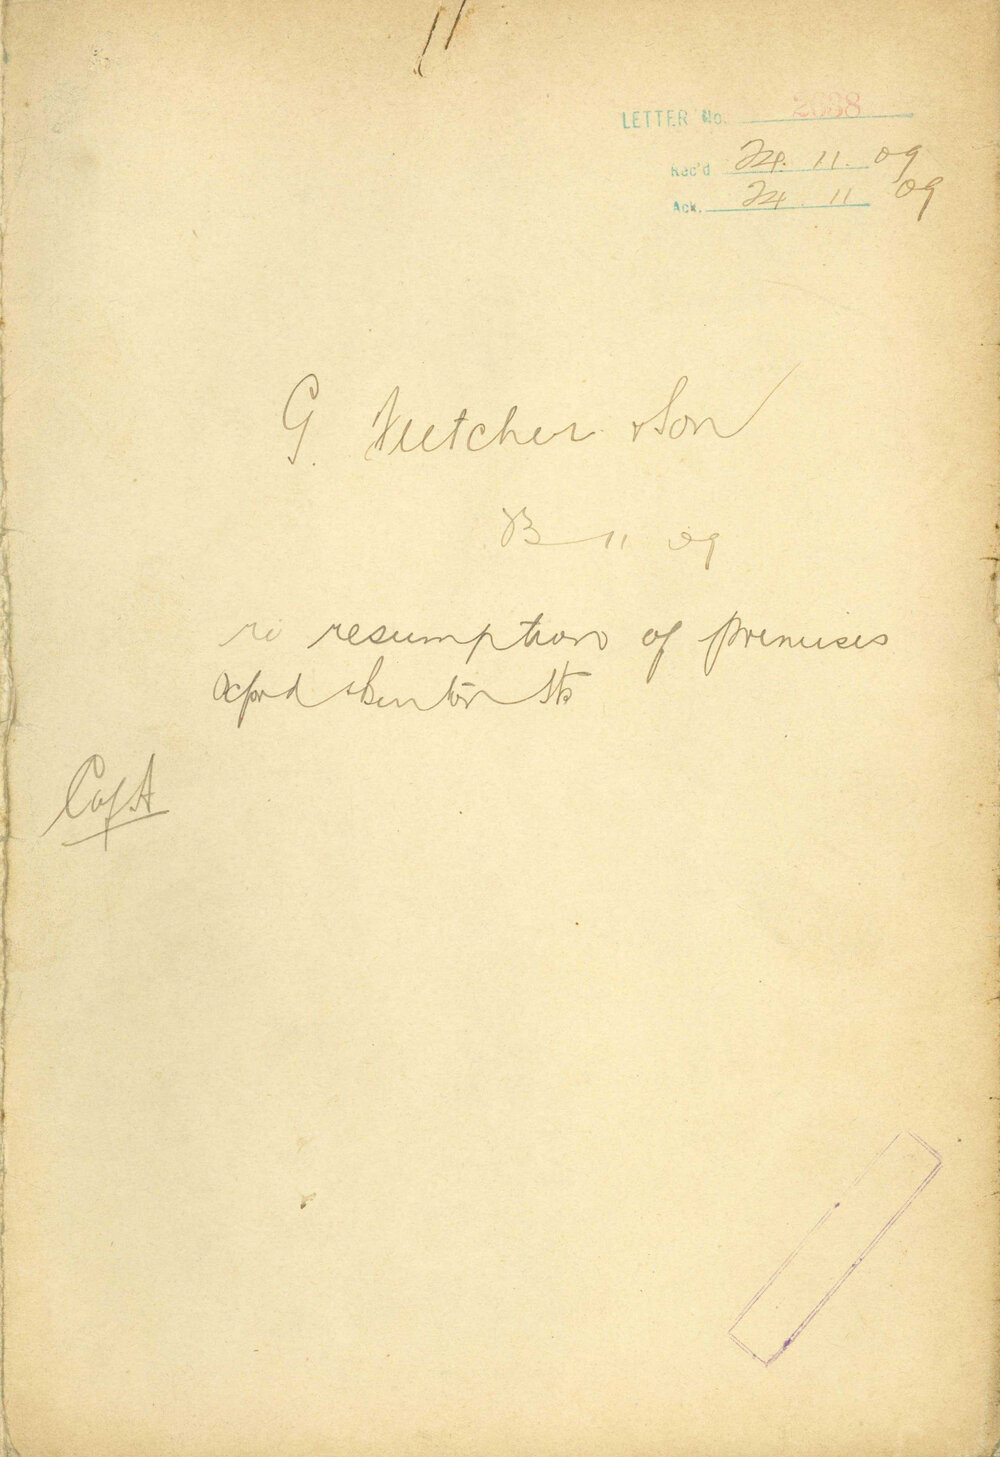 11
LETTER No. 2638
Rec'd 24. 11. 09
Ack. 24. 11 09
G. Fletcher & Son
23 11 09
re resumption of premises
Oxford & Sts